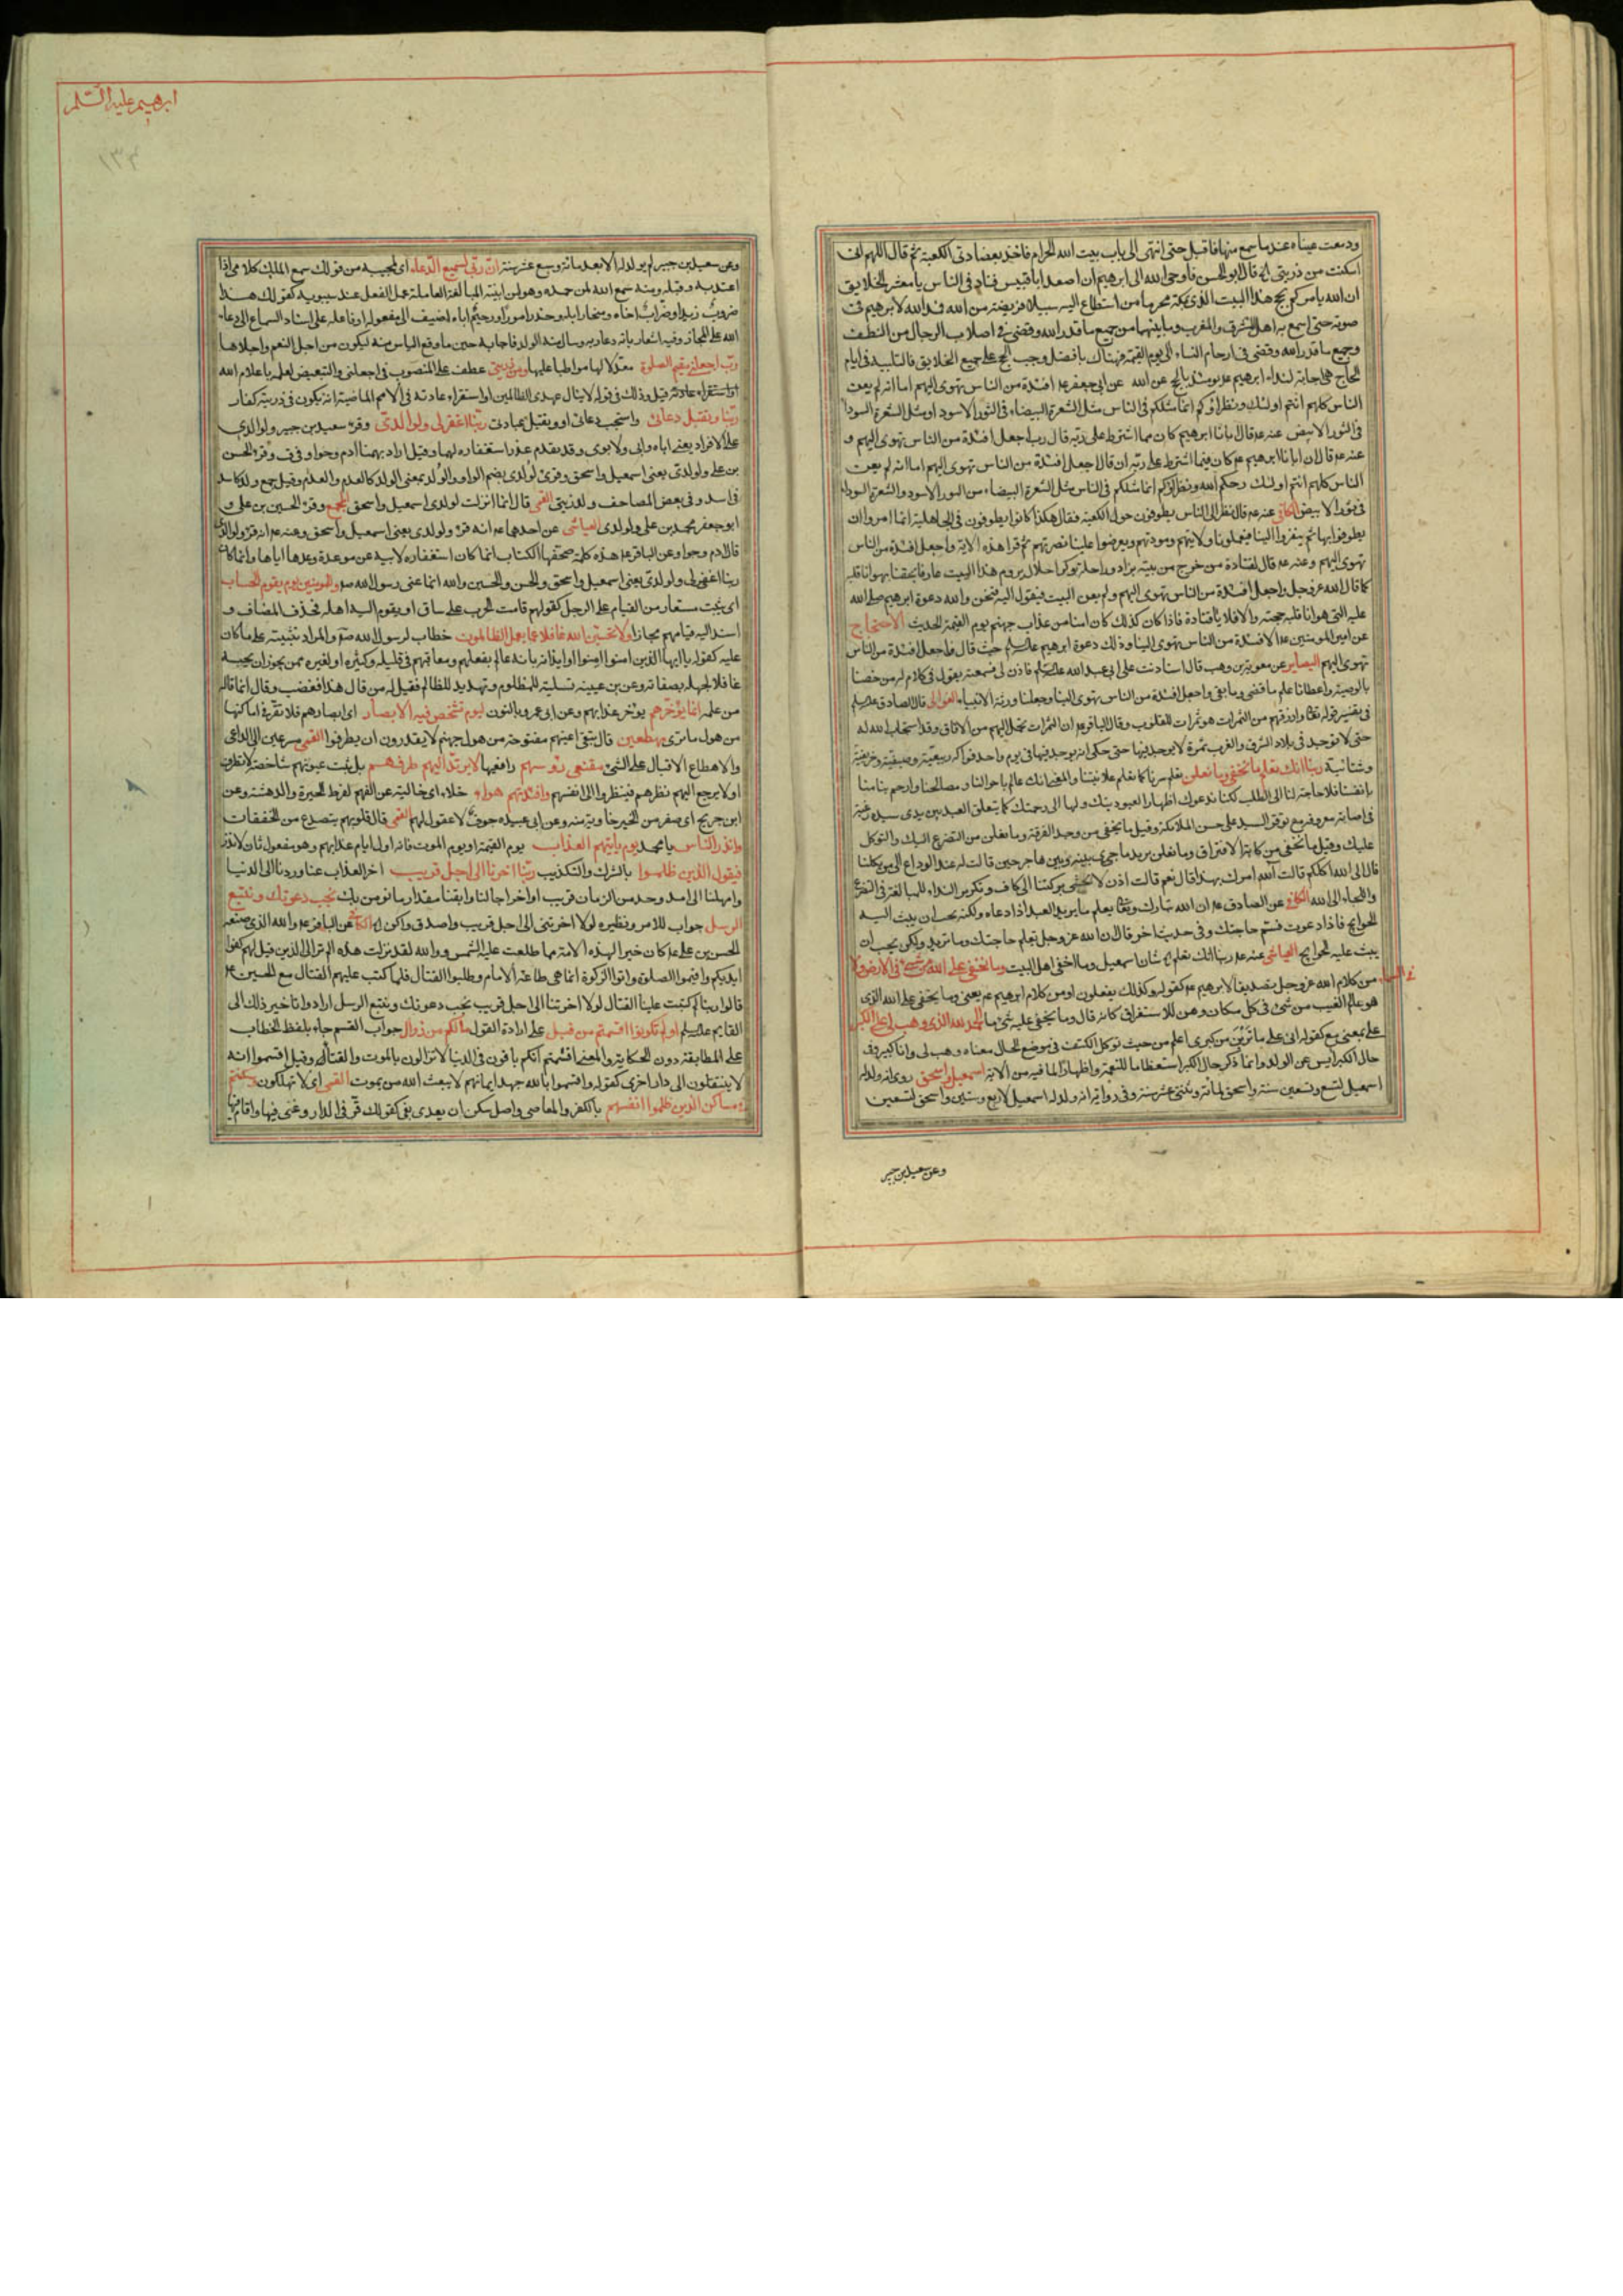 ودمعت عيناه عندما سمع منها فاقبل حتى انتهى الى باب بيت الله الحرام فاخذ بعضادتى الكعبة ثم قال اللهم انى
اسكنت من ذريتى الخ قال ابو الحسن فاوحى الله الى ابرهيم ان اصعد ابا قبيس فناد فى الناس يا معشر الخلايق
ان الله يامركم بحج هذا البيت الذى بمكة محرما من استطاع اليه سبيلا فريضة من الله فمد الله لابرهيم فى
صوته حتى اسمع به اهل المشرق والمغرب وما بينهما من جميع ما قدر الله وقضى فى اصلاب الرجال من النطف
وجميع ما قدر الله وقضى فى ارحام النساء الى يوم القيمة فهناك يا فضل وجب الحج على جميع الخلايق فالتلبية فى ايام
الحاج هى اجابة لنداء ابرهيم يومئذ بالحج عن الله عن ابى جعفر افئدة من الناس تهوى اليهم اما انه لم يعن
الناس كلهم انتم اولئك ونظراؤكم انما مثلكم فى الناس مثل الشعرة البيضاء فى الثور الاسود او مثل الشعرة السوداء
فى الثور الابيض عنه قال
عنه قال ان ابانا ابرهيم كان فيما اشترط على ربه ان قال اجعل افئدة من الناس تهوى اليهم اما انه لم يعن
الناس كلهم انتم اولئك رحمكم الله ونظراؤكم انما مثلكم فى الناس مثل الشعرة البيضاء من الثور الاسود والشعرة السوداء
فى ثور الابيض الكافى عنه قال نظر الى الناس يطوفون حول الكعبة فقال هكذا كانوا يطوفون فى الجاهلية انما امروا ان
يطوفوا بها ثم ينفروا الينا فيعلمونا ولايتهم ومودتهم ويعرضوا علينا نصرتهم ثم قرا هذه الاية واجعل افئدة من الناس
تهوى اليهم وعنه قال لقتادة من خرج من بيته بزاد وراحلة وكرا حلال يروم هذا البيت عارفا بحقنا يهوانا قلبه
كما قال الله عز وجل واجعل افئدة من الناس تهوى اليهم ولم يعن البيت فيقول اليه فنحن والله دعوة ابرهيم صلى الله
عليه التى من هوانا قلبه قبلت حجته والا فلا يا قتادة فاذا كان كذلك كان امنا من عذاب جهنم يوم القيمة الحديث الاحتجاج
عن امير المومنين والافئدة من الناس تهوى الينا وذلك دعوة ابرهيم حيث قال واجعل افئدة من الناس
تهوى اليهم البصاير عن معوية بن وهب قال استاذنت على ابى عبد الله فاذن لى فسمعته يقول فى كلام له يا من خصنا
بالوصية واعطانا علم ما مضى وما بقى واجعل افئدة من الناس تهوى الينا وجعلنا ورثة الانبياء الغوالى قال الصادق
فى تفسير قوله تعالى وارزقهم من الثمرات هو ثمرات القلوب وقال الباقر ان الثمرات تحمل اليهم من الافاق وقد استجاب الله له
حتى لا توجد فى بلاد الشرق والغرب ثمرة لا يوجد فيها حتى حكى انه يوجد فيها فى يوم واحد فواكه ربيعية وصيفية وخريفية
وشتائية ربنا انك تعلم ما نخفى وما نعلن تعلم سرنا كما تعلم علانيتنا والمعنى انك عالم باحوالنا ومصالحنا وارحم بنا منا
بانفسنا فلا حاجة لنا الى الطلب لكنا ندعوك اظهارا لعبوديتك
عليك وقيل ما نخفى من كابة الافتراق وما نعلن يريد ما جرى بينه وبين هاجر حين قالت له عند الوداع الى من تكلنا
قال الى الله اكلكم قالت آلله امرك بهذا قال نعم قالت اذن لا نخشى
واللجاء الى الله الكافى عن الصادق ان الله تبارك وتعالى يعلم ما يريد العبد اذا دعاه ولكنه يحب ان يبث اليه
الحوايج فاذا دعوت فسم حاجتك وفى حديث اخر قال ان الله عز وجل يعلم حاجتك وما تريد ولكن يحب ان
يبث عليه الحوايج العياشى عنه ربنا انك تعلم الخ شان اسمعيل وما اخفى اهل البيت وما يخفى على الله من شىء فى الارض ولا
فى السماء من كلام الله عز وجل تصديقا لابرهيم كقوله وكذلك يفعلون او من كلام ابرهيم يعنى وما يخفى على الله الذى
هو عالم الغيب من شىء فى كل مكان ومن للاستغراق كانه قال وما يخفى عليه شىء ما الحمد لله الذى وهب لى على الكبر
على بمعنى مع كقوله انى على ما ترين من كبرى اعلم من حيث توكل الكتف فى موضع الحال معناه وهب لى وانا كبير وفى
حال الكبر ايس عن الولد وانما ذكر حال الكبر استعظاما للنعمة واظهارا لما فيه من الاية اسمعيل واسحق روى انه ولد له
اسمعيل لتسع وتسعين سنة واسحق لمائة وثنتى عشرة سنة وفى رواية انه ولد له اسمعيل لاربع وستين واسحق لتسعين
وعن سعيد بن جبير
ابرهيم عليه السلم
١٣٣
وعن سعيد بن جبير لم يولد له الا بعد مائة وسبع عشر سنة ان ربى لسميع الدعاء اى لمجيبه من قولك سمع الملك كلامى اذا
اعتد به وقبله ومنه سمع الله لمن حمده وهو من ابنية المبالغة العاملة عمل الفعل عند سيبويه كقولك هذا
ضروب زيدا وضراب اخاه ومنحار ابله وحذر امورا ورحيم اباه اضيف الى مفعوله او فاعله على اسناد السماع الى دعاء
الله على المجاز وفيه اشعار بانه دعا ربه وسال منه الولد فاجابه حين ما وقع الياس منه ليكون من اجل النعم واجلاها
رب اجعلنى مقيم الصلوة معدلا لها مواظبا عليها ومن ذريتى عطف على المنصوب فى اجعلنى والتبعيض لعلمه باعلام الله
او استقراء عادته قيل وذلك فى قوله لا ينال عهدى الظالمين او استقراء عادته فى الامم الماضية انه يكون فى ذريته كفار
ربنا وتقبل دعائى واستجب دعائى او وتقبل عبادتى ربنا اغفر لى ولوالدى وقرء سعيد بن جبير ولوالدى
على الافراد يعنى اباه وابى ولابوى وقد يقدم عذر استغفاره لهما وقيل اراد بهما ادم وحوا وفى ف وقرء الحسن
بن على ولولدى يعنى اسمعيل واسحق وقرئ لولدى بضم الواو والولد بمعنى الولد كالعدم والعدم وقيل جمع ولد كاسد
فى اسد وفى بعض المصاحف ولذريتى القمى قال انما انزلت لولدى اسمعيل واسحق المجمع وقرء الحسين بن على و
ابو جعفر محمد بن على ولولدى العياشى عن احدهما انه قرء ولولدى يعنى اسمعيل واسحق وعنه انه قرء ولوالدى
قال ادم وحوا وعن الباقر هذه كلمة صحفها الكتاب انما كان استغفاره لابيه عن موعدة وعدها اياه وانما كان
ربنا اغفر لى ولولدى يعنى اسمعيل واسحق والحسن والحسين والله انما عنى رسول الله وللمومنين يوم يقوم الحساب
اى يثبت مستعار من القيام على الرجل كقولهم قامت الحرب على ساق او يقوم اليه اهله فحذف المضاف و
اسند اليه قيامهم مجازا ولا تحسبن الله غافلا عما يعمل الظالمون خطاب لرسول الله والمراد تثبيته على ما كان
عليه كقوله يا ايها الذين امنوا امنوا او ايذانه بانه عالم بفعلهم ومعاقبهم فى قليله وكثيره او لغيره ممن يجوز ان يحسبه
غافلا لجهله بصفاته وعن بن عيينه تسلية للمظلوم وتهديد للظالم فقيل له من قال هذا فغضب وقال انما قاله
من علمه انما يؤخرهم يؤخر عذابهم وعن ابى عمرو بالنون ليوم تشخص فيه الابصار اى ابصارهم فلا تقر فى اماكنها
من هول ما ترى مهطعين قال تبقى اعينهم مفتوحة من هول جهنم لا يقدرون ان يطرفوا القمى مسرعين الى الداعى
والاهطاع الاقبال على الشئ مقنعى رؤسهم رافعيها لا يرتد اليهم طرفهم بل يثبت عيونهم شاخصة لا تطرف
او لا يرجع اليهم نظرهم فينظروا الى انفسهم وافئدتهم هواء خلاء اى خالية عن الفهم لفرط الحيرة والدهشة وعن
ابن جريج اى صفر من الخير خاوية منه وعن ابى عبيده جوف لا عقول لهم القمى قال قلوبهم يتصدع من الخفقان
وانذر الناس يا محمد يوم ياتيهم العذاب يوم القيمة او يوم الموت فانه اول ايام عذابهم وهو مفعول ثان لانذر
فيقول الذين ظلموا بالشرك والتكذيب ربنا اخرنا الى اجل قريب اخر العذاب عنا وردنا الى الدنيا
وامهلنا الى امد وحد من الزمان قريب او اخر اجالنا وابقنا مقدار ما نومن بك نجب دعوتك ونتبع
الرسل جواب للامر ونظيره لولا اخرتنى الى اجل قريب فاصدق واكن الخ الكافى عن الباقر والله الذى صنعه
الحسن بن على كان خيرا لهذه الامة مما طلعت عليه الشمس ووالله لقد نزلت هذه الم تر الى الذين قيل لهم كفوا
ايديكم واقيموا الصلوة واتوا الزكوة انما هى طاعة الامام وطلبوا القتال فلما كتب عليهم القتال مع الحسين
قالوا ربنا لم كتبت علينا القتال لولا اخرتنا الى اجل قريب نجب دعوتك ونتبع الرسل ارادوا تاخير ذلك الى
القايم اولم تكونوا اقسمتم من قبل على ارادة القول مالكم من زوال جواب القسم جاء بلفظ الخطاب
على المطابقة دون الحكاية والمعنى اقسمتم انكم باقون فى الدنيا لا تزالون بالموت والقتال وقيل اقسموا انه
لا ينتقلون الى دار اخرى كقوله واقسموا بالله جهد ايمانهم لا يبعث الله من يموت القمى اى لا تهلكون وسكنتم
فى مساكن الذين ظلموا انفسهم بالكفر والمعاصى واصل سكن ان يعدى بفى كقولك قر فى الدار وغنى فيها واقام فيها